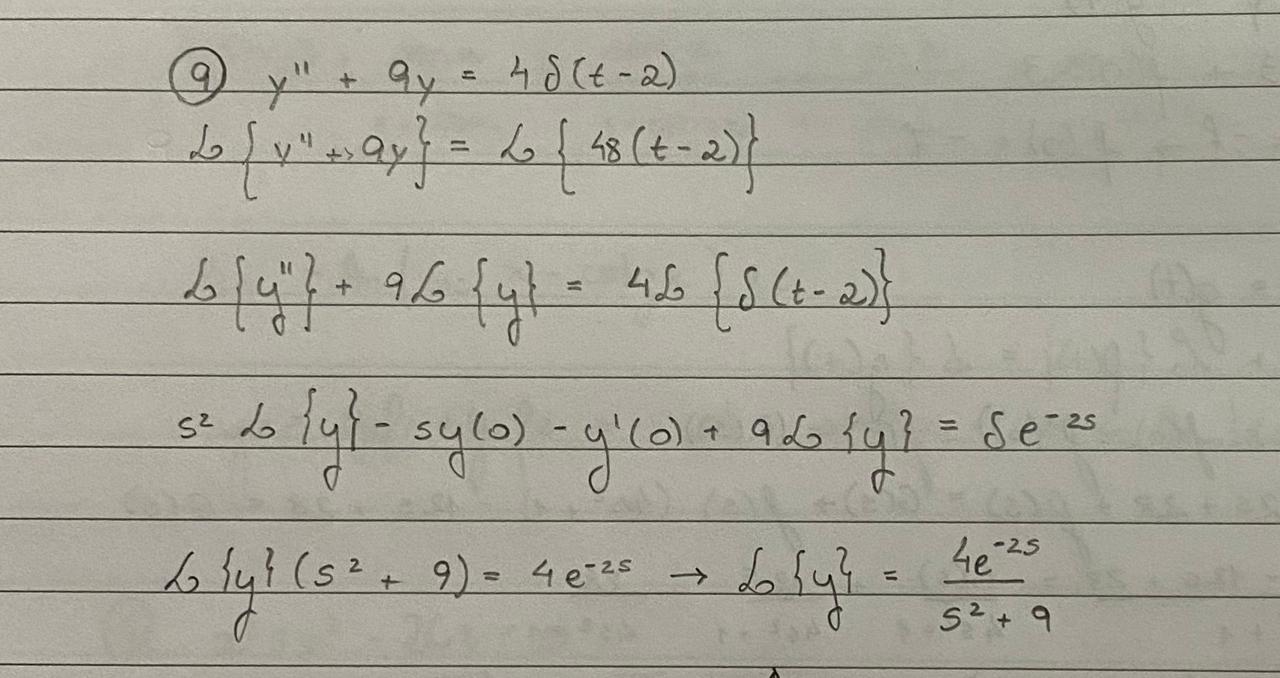 ⑨ y'' + 9y = 4δ(t-2)
ℒ{y'' + 9y} = ℒ{48(t-2)}
ℒ{y''} + 9ℒ{y} = 4ℒ{δ(t-2)}
s² ℒ{y} - sy(0) - y'(0) + 9ℒ{y} = δe⁻²ˢ
ℒ{y}(s² + 9) = 4e⁻²ˢ → ℒ{y} = 4e⁻²ˢ / s² + 9